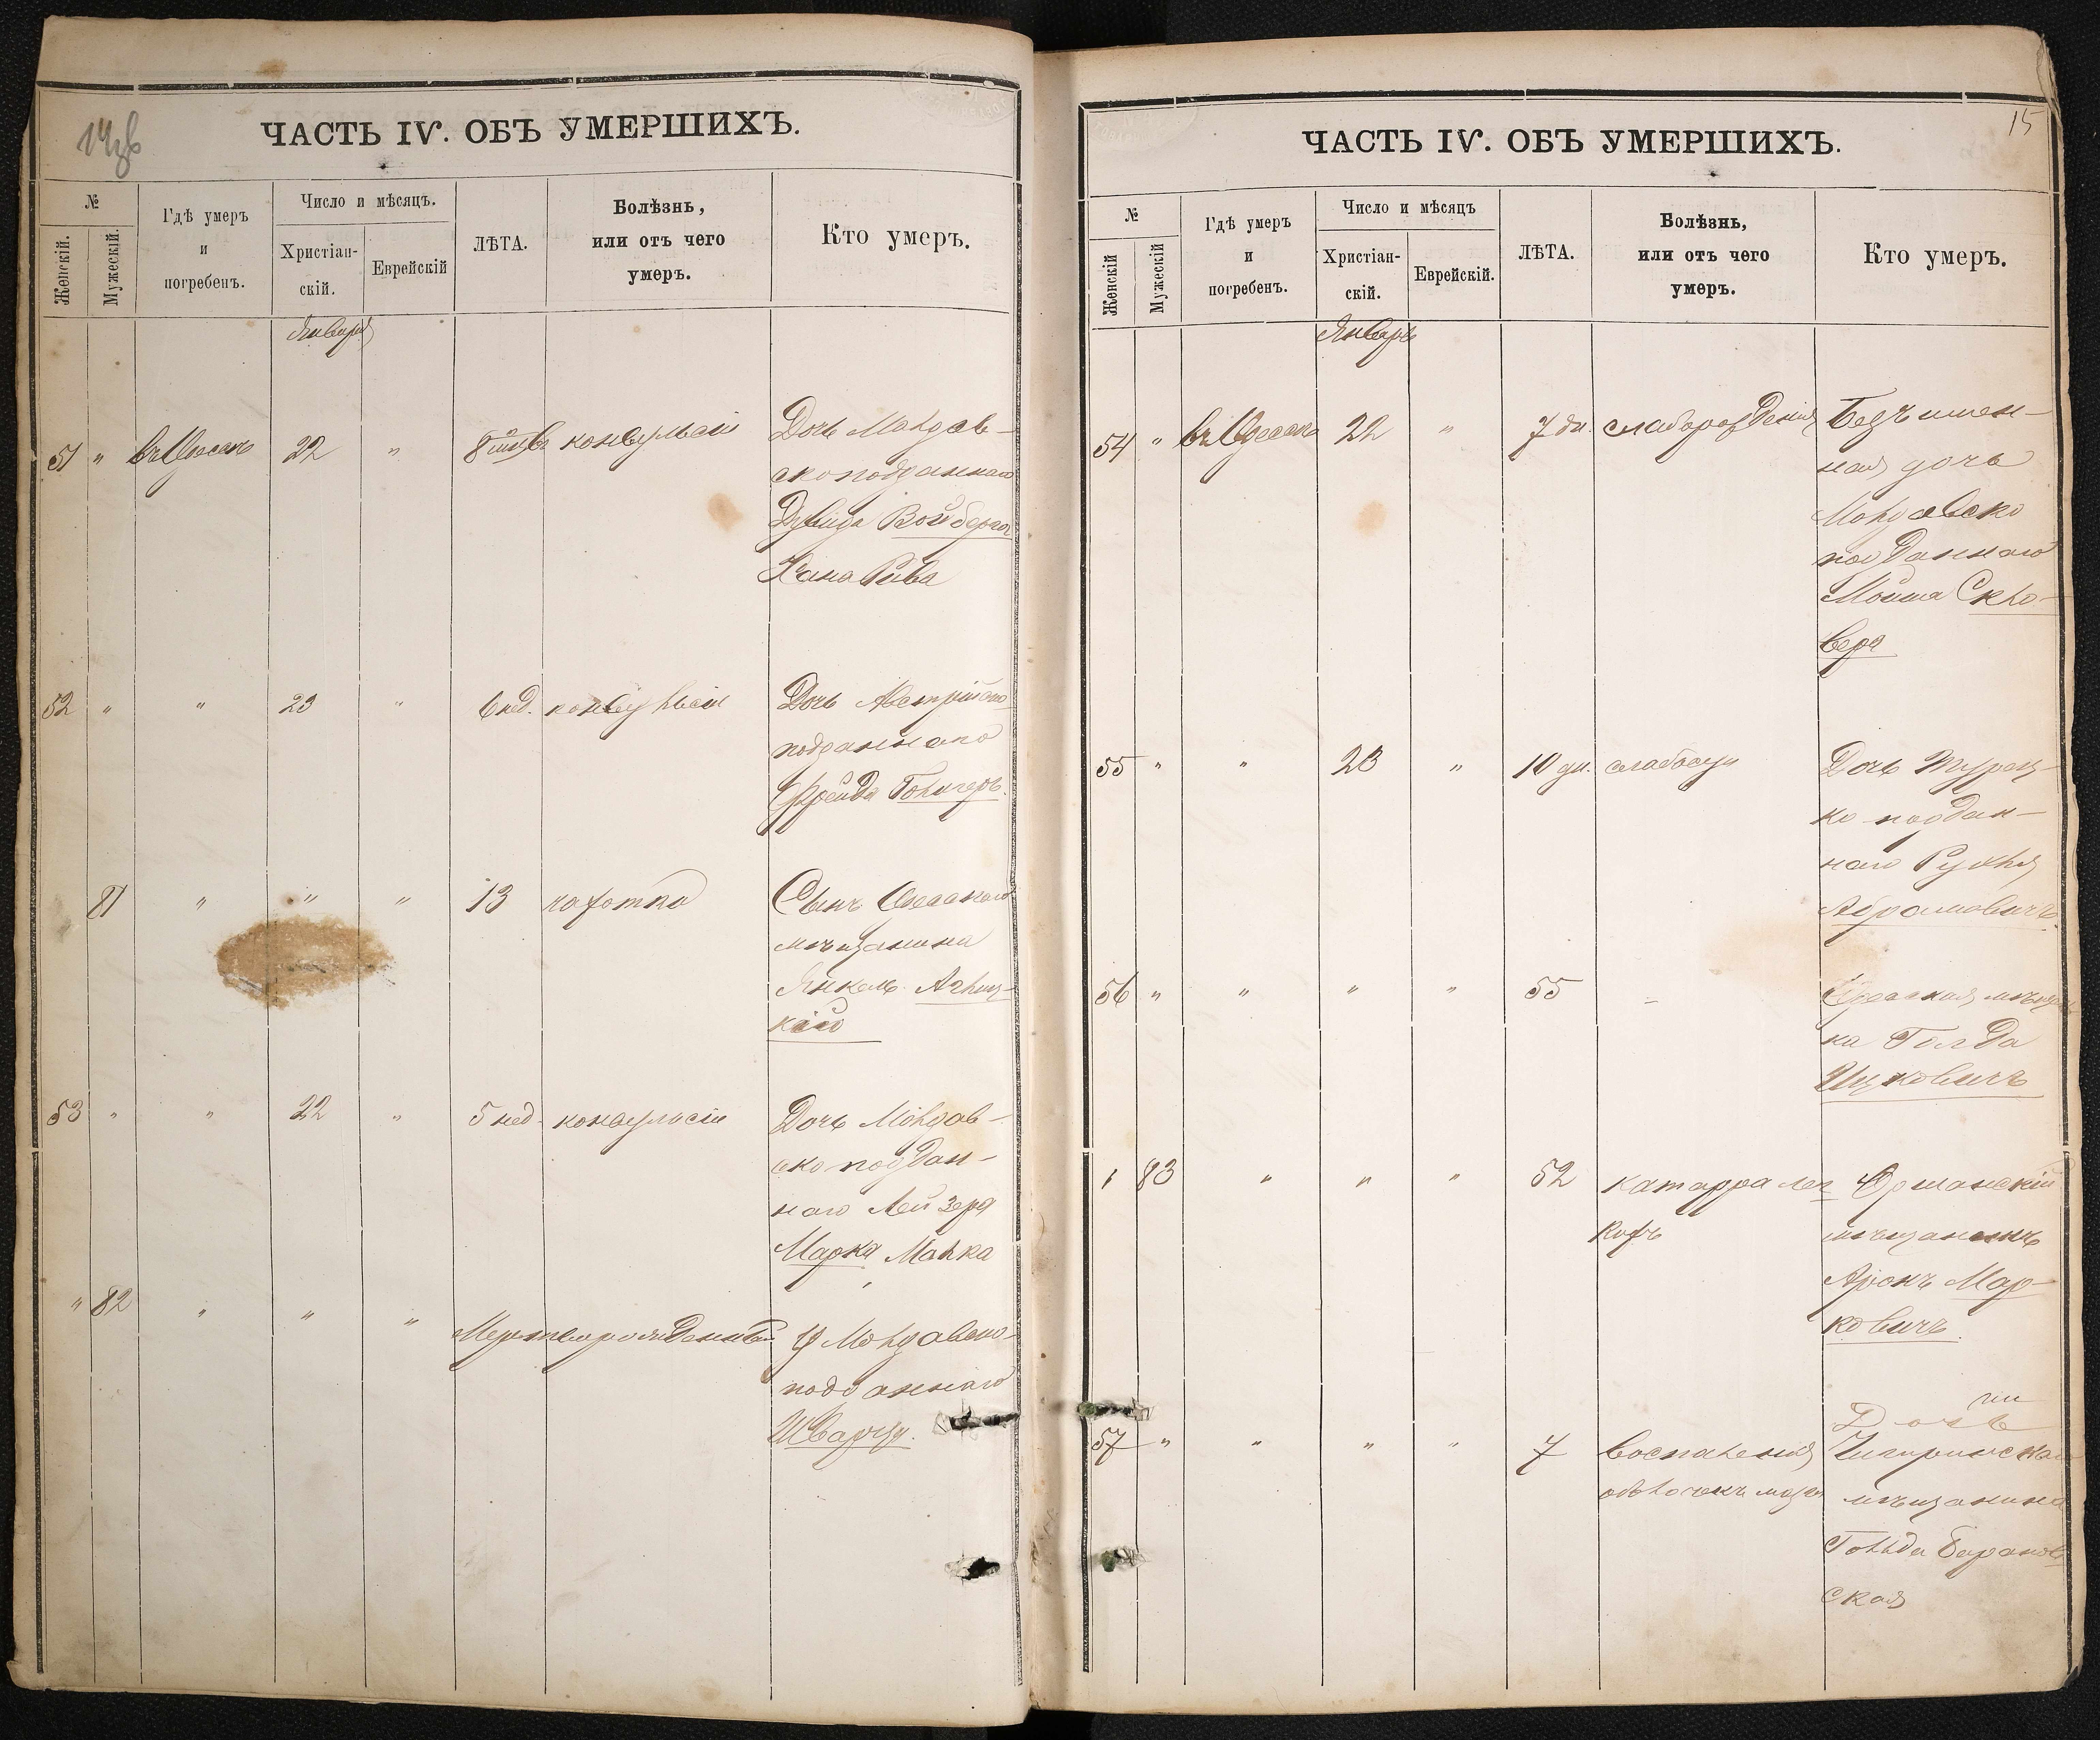 14зв
ЧАСТЬ IV. ОБЪ УМЕРШИХЪ.
№
Женскій.
Мужескій.
Гдѣ умеръ
и
погребенъ.
Число и мѣсяцъ.
Христіан-
скій.
Еврейскій
ЛѢТА.
Болѣзнь,
или отъ чего
умеръ.
Кто умеръ.
Январь
51 " въ Одессѣ 22 " 8 конвульсіи Дочь Молдав-
скоподданнаго
Дувида Войберга
Хана Рива
52 " " 23 " 6 нед. конвульсіи Дочь Австрійско
подданнаго
Фрейда
81 " " " 13 чахотка Сынъ Одесскаго
мѣщанина
Янкель
кій
53 " " 22 " 5 нед. конвульсіи Дочь Молдав-
скоподдан-
наго Лейзера
Марка Малка
" 82 " " " Мертворожденный У Молдавско-
подданнаго
Шварца.
15
ЧАСТЬ IV. ОБЪ УМЕРШИХЪ.
№
Женскій
Мужескій
Гдѣ умеръ
и
погребенъ.
Число и мѣсяцъ
Христіан-
скій.
Еврейскій.
ЛѢТА.
Болѣзнь,
или отъ чего
умеръ.
Кто умеръ.
Январь
54 " въ Одессѣ 22 " 7 дн. слаборожденія Безъимен-
ная дочь
Молдавско
подданнаго
Мойша Скло-
вера
55 " " 23 " 10 дн. слабости Дочь Турец-
ко поддан-
наго Рухля
Абрамовичъ.
56 " " " " 55 – Одесская мѣщан
ка Голда
Ицковичъ
" 83 " " " 52 катарра лег
кихъ
мѣщанинъ
Аронъ Мар-
ковичъ.
57 " " " " 7 воспаленія
оболочекъ мозга
Дочь
Чигиринскаго
мѣщанина
Гольда Баранов
ская